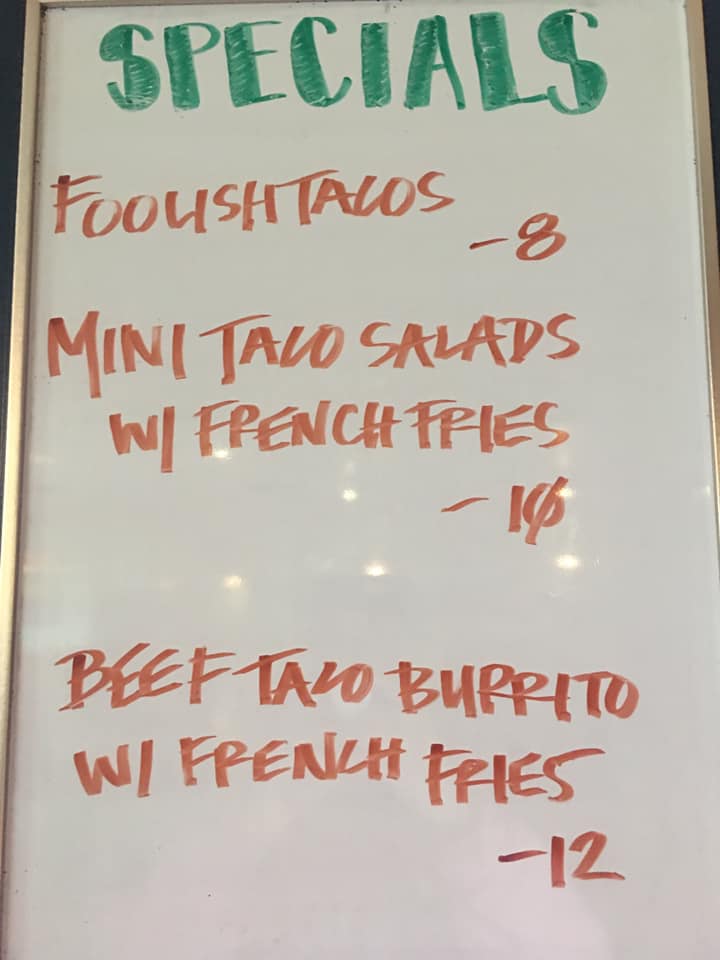 SPECIALS
FOOLISH TACOS
-8
MINI TACO SALADS
W/ FRENCH FRIES
- 10
BEEF TACO BURRITO
W/ FRENCH FRIES
-12